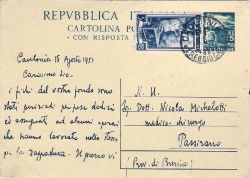 REPVBBLICA I
CARTOLINA PO
- CON RISPOSTA
15 Agosto 1951
Carissimo Zio,
i fichi del vostro fondo sono
stati
ed assegnati ad alcuni operai
che hanno lavorato nello stesso
per la zappatura. Il prezzo vi
N. H.
Dott. Nicola Michelotti
medico-chirurgo
Passirano
(Prov. di Brescia)